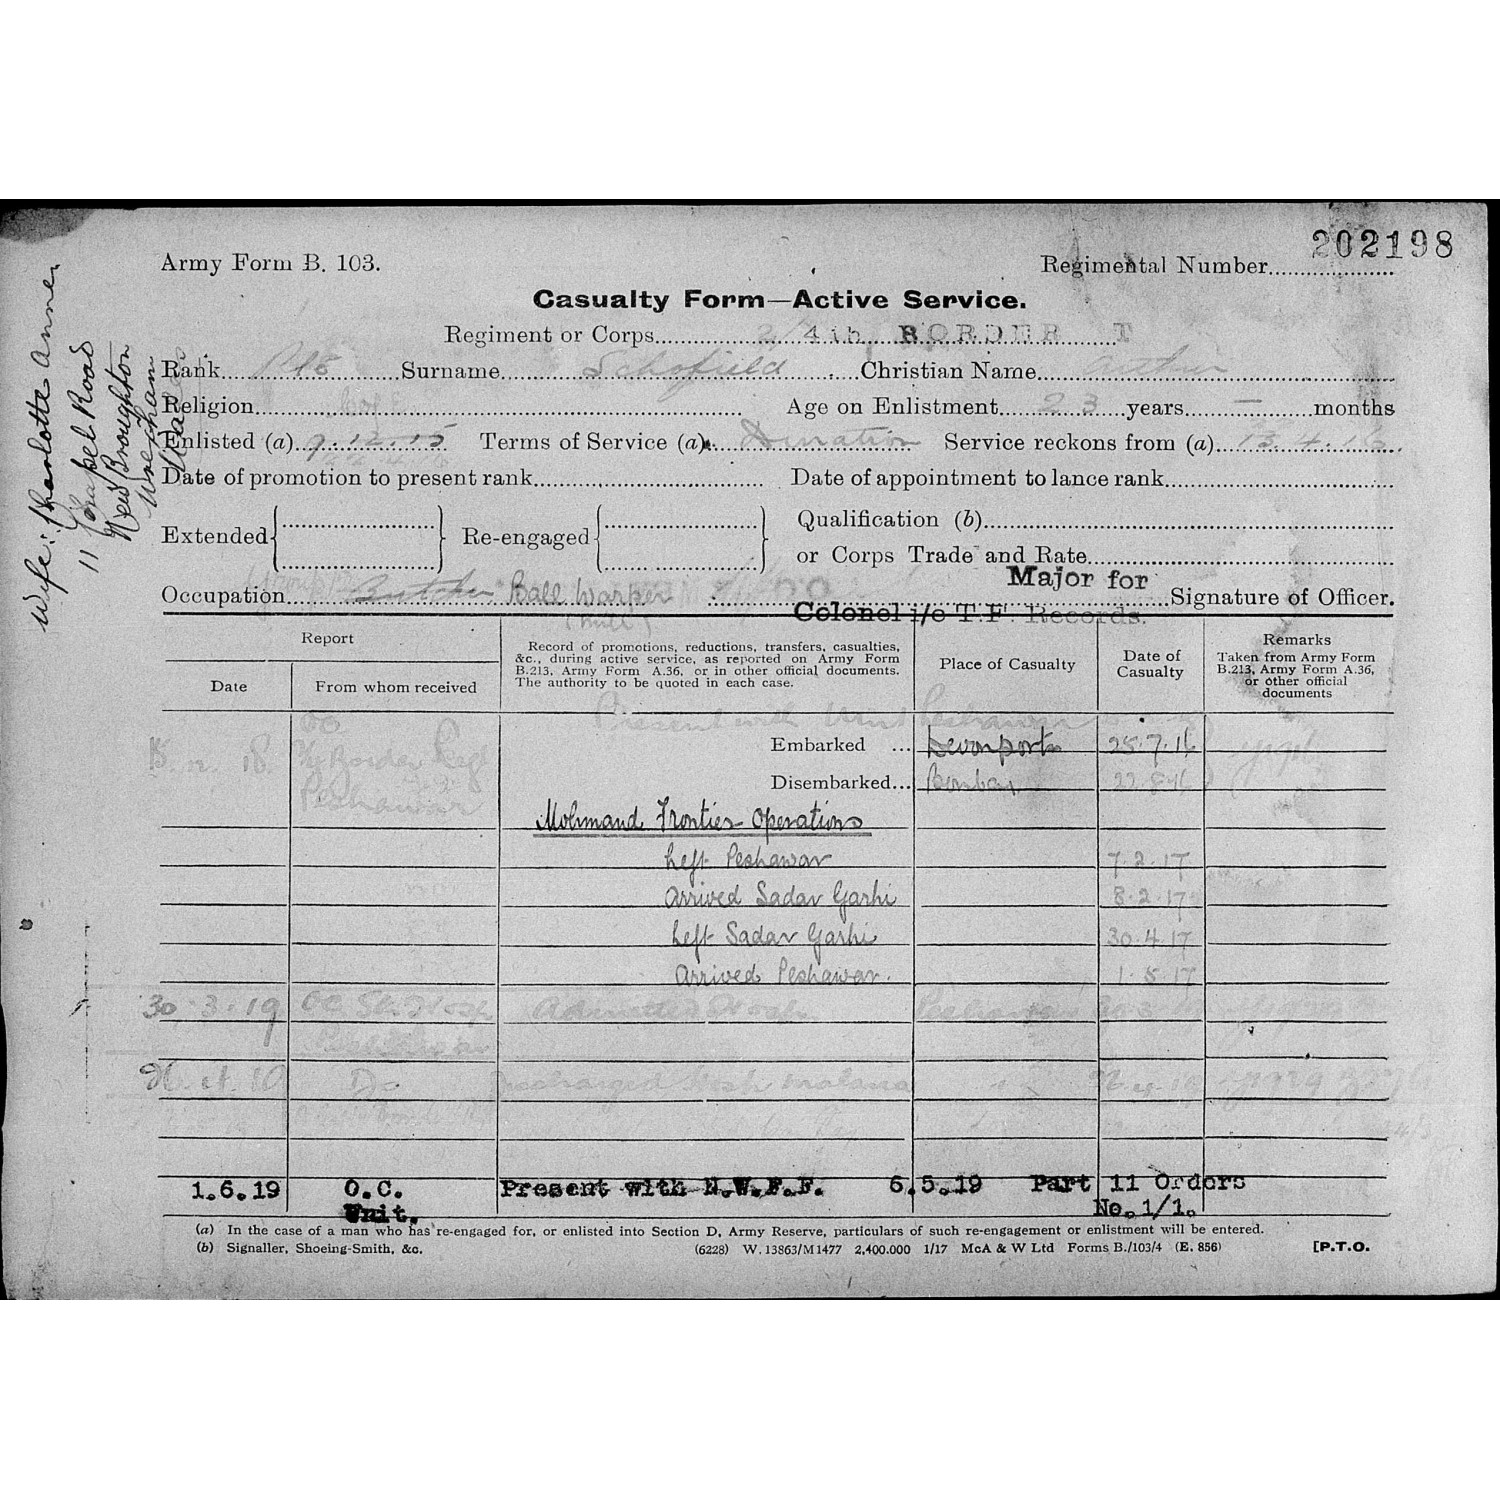 202198
Army Form B. 103.
Regimental Number
Casualty Form—Active Service.
Regiment or Corps 2/4th BORDER T
Rank Pte Surname Schofield Christian Name Arthur
Religion C of E Age on Enlistment 23 years — months
Enlisted (a) 9.12.15 Terms of Service (a) Duration Service reckons from (a) 13.4.16
Date of promotion to present rank Date of appointment to lance rank
Extended Re-engaged Qualification (b)
or Corps Trade and Rate
Major for
Occupation Butcher Ball Warper Signature of Officer.
(Mill)
Colonel i/c T.F. Records.
Wife: Charlotte Annie
11 Chapel Road
New Broughton
Wrexham
Report
Date
From whom received
Record of promotions, reductions, transfers, casualties,
&c., during active service, as reported on Army Form
B.213, Army Form A.36, or in other official documents.
The authority to be quoted in each case.
Place of Casualty
Date of
Casualty
Remarks
Taken from Army Form
B.213, Army Form A.36,
or other official
documents
OC Present with Unit Peshawar
Embarked ... Devonport 25.7.16
18 Border Regt
Peshawar
Disembarked... Bombay 22.8.16
Mohmand Frontier Operations
Left Peshawar 7.2.17
Arrived Sadar Garhi 8.2.17
Left Sadar Garhi 30.4.17
Arrived Peshawar. 1.5.17
30.3.19 OC Stn Hosp Admitted Hosp Peshawar
Peshawar
Do Discharged Hosp malaria
1.6.19 O.C. Present with N.W.F.F. 6.5.19 Part 11 Orders
Unit. No.1/1.
(a) In the case of a man who has re-engaged for, or enlisted into Section D, Army Reserve, particulars of such re-engagement or enlistment will be entered.
(b) Signaller, Shoeing-Smith, &c. (6228) W. 13863/M1477 2,400.000 1/17 McA & W Ltd Forms B./103/4 (E. 856) [P.T.O.